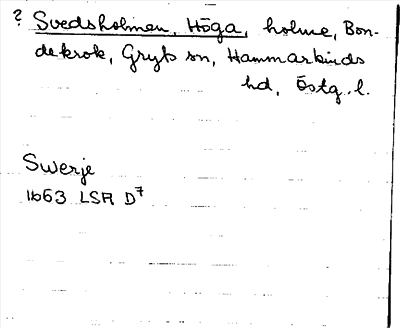 ? Svedsholmen, Höga, holme, Bon-
dekrok, Gryts sn, Hammarkinds
hd, Östg. l.
Swerje
1663 LSA D⁷